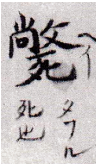 斃
ヘイ
タフル
死也